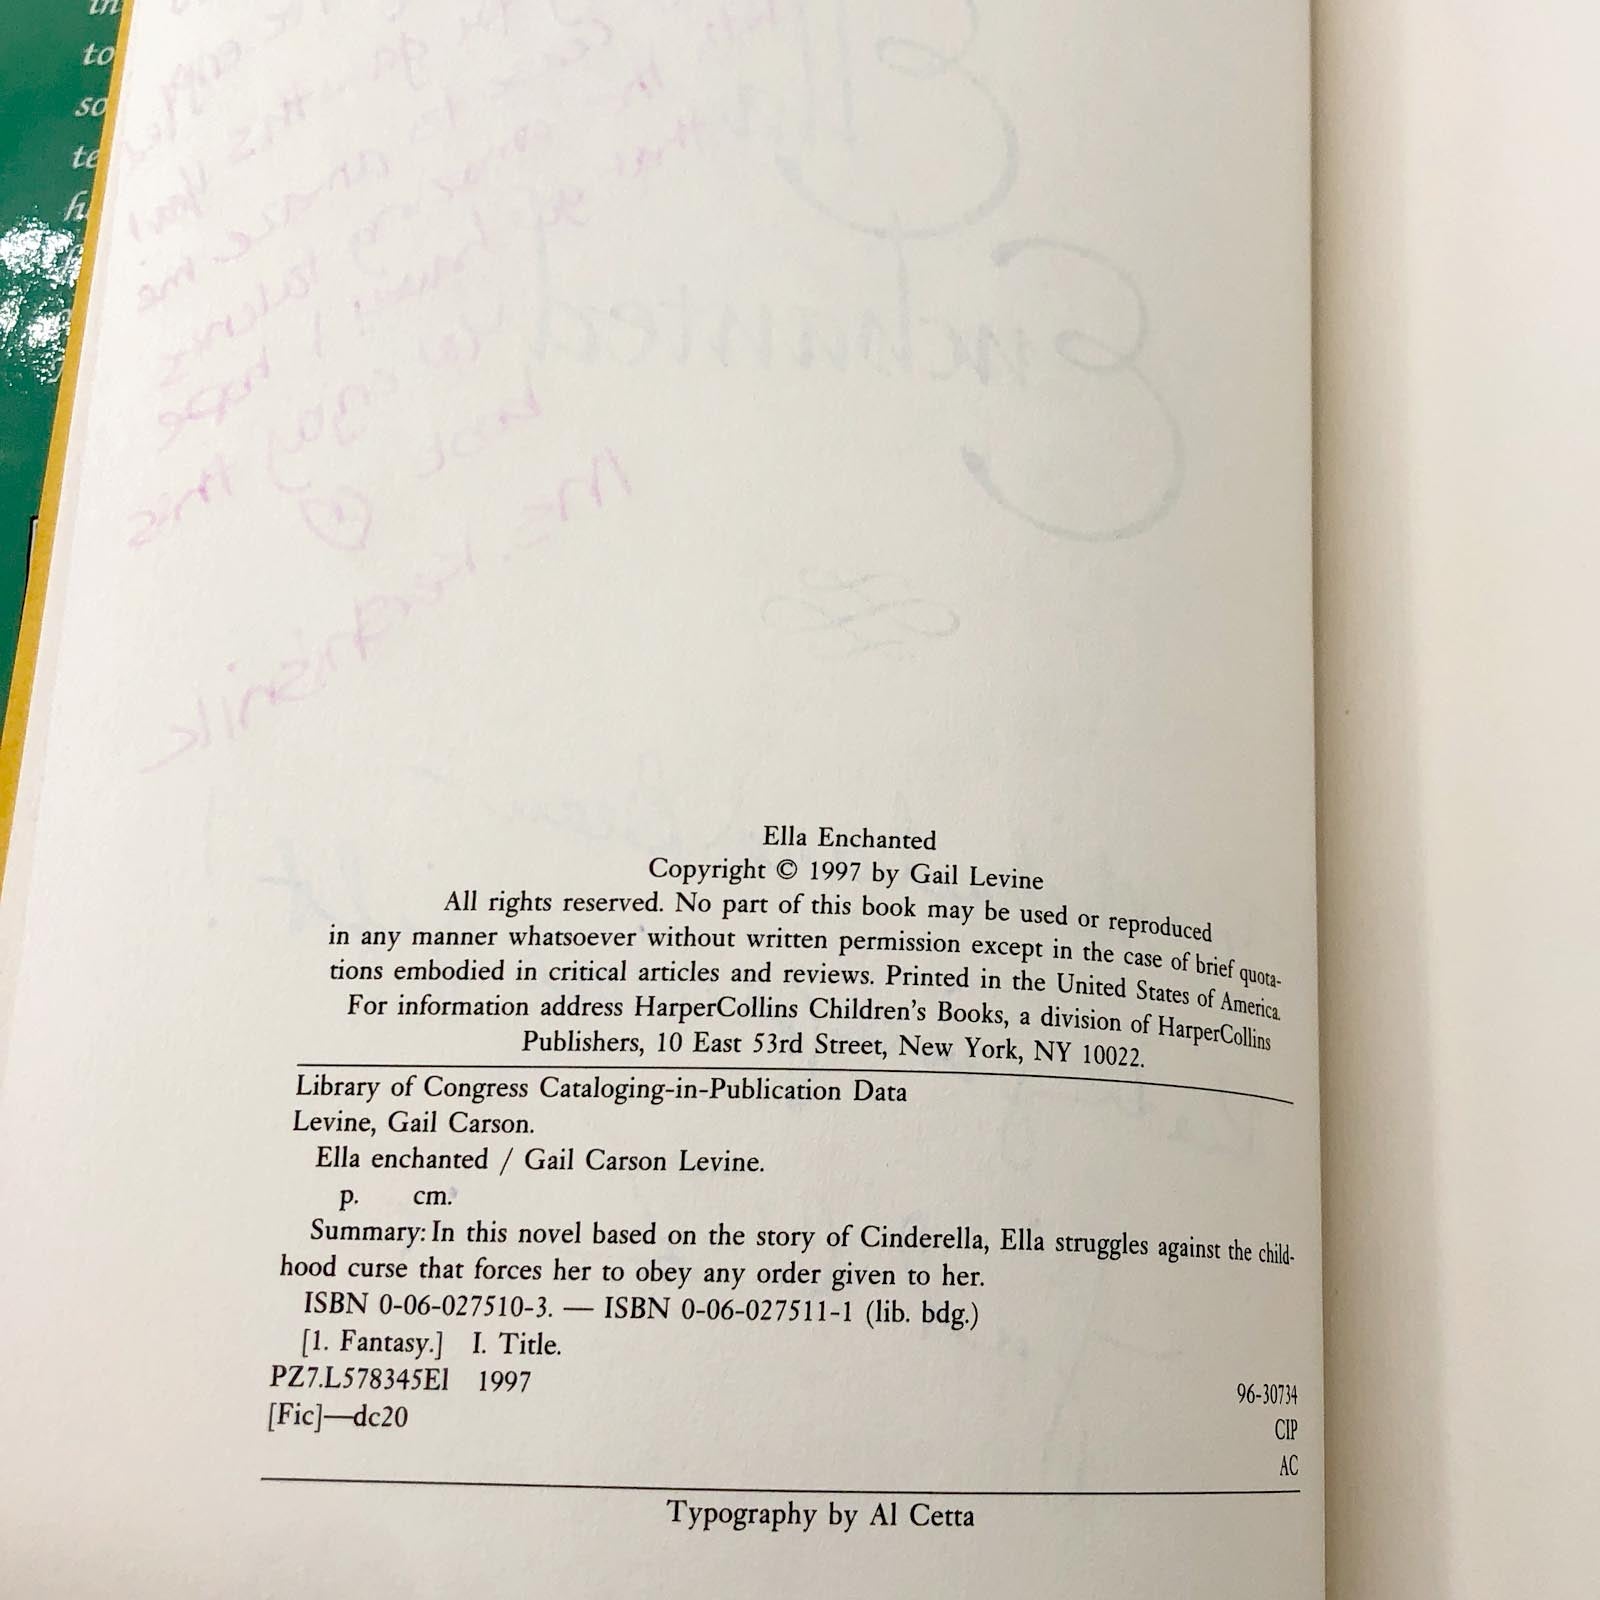 in
to
so
te
Ella
Enchanted
Ella Enchanted
Copyright © 1997 by Gail Levine
All rights reserved. No part of this book may be used or reproduced
in any manner whatsoever without written permission except in the case of brief quota-
tions embodied in critical articles and reviews. Printed in the United States of America.
For information address HarperCollins Children's Books, a division of HarperCollins
Publishers, 10 East 53rd Street, New York, NY 10022.
Library of Congress Cataloging-in-Publication Data
Levine, Gail Carson.
Ella enchanted / Gail Carson Levine.
p. cm.
Summary: In this novel based on the story of Cinderella, Ella struggles against the child-
hood curse that forces her to obey any order given to her.
ISBN 0-06-027510-3. — ISBN 0-06-027511-1 (lib. bdg.)
[1. Fantasy.] I. Title.
PZ7.L578345El 1997 96-30734
[Fic]—dc20 CIP
AC
Typography by Al Cetta